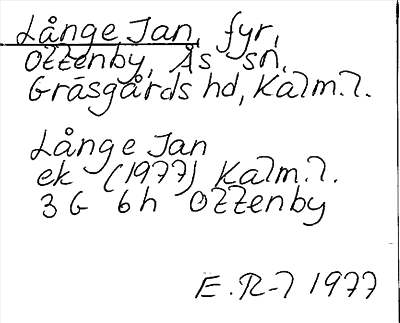 Långe Jan, fyr,
Ottenby, Ås sn,
Gräsgårds hd, Kalm.l.
Långe Jan
ek (1977) Kalm.l.
3G 6h Ottenby
E.R-l 1977